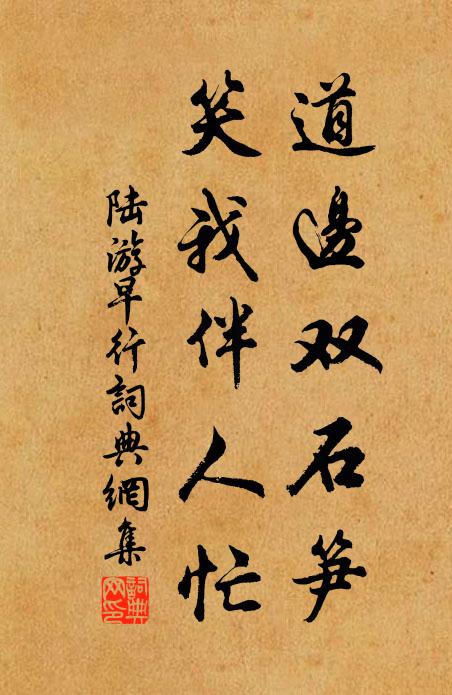 道邊双石笋
笑我伴人忙
陆游早行詞典網集
詞典网印